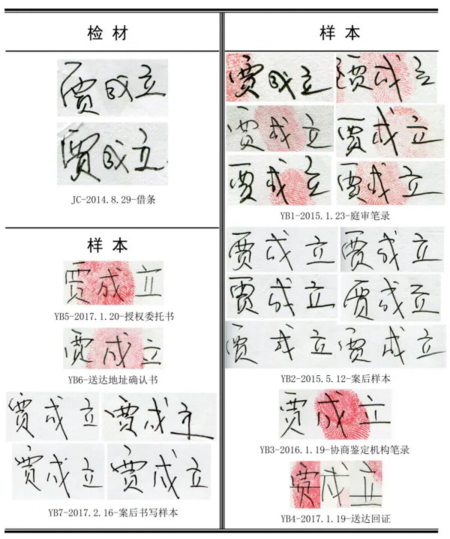 检材
贾成立
贾成立
JC-2014.8.29-借条
样本
贾成立
YB5-2017.1.20-授权委托书
贾成立
YB6-送达地址确认书
贾成立 贾成立
贾成立 贾成立
YB7-2017.2.16-案后书写样本
样本
贾成立 贾成立
贾成立 贾成立
贾成立 贾成立
YB1-2015.1.23-庭审笔录
贾成立 贾成立
贾成立 贾成立
贾成立 贾成立
YB2-2015.5.12-案后样本
贾成立
YB3-2016.1.19-协商鉴定机构笔录
贾成立
YB4-2017.1.19-送达回证